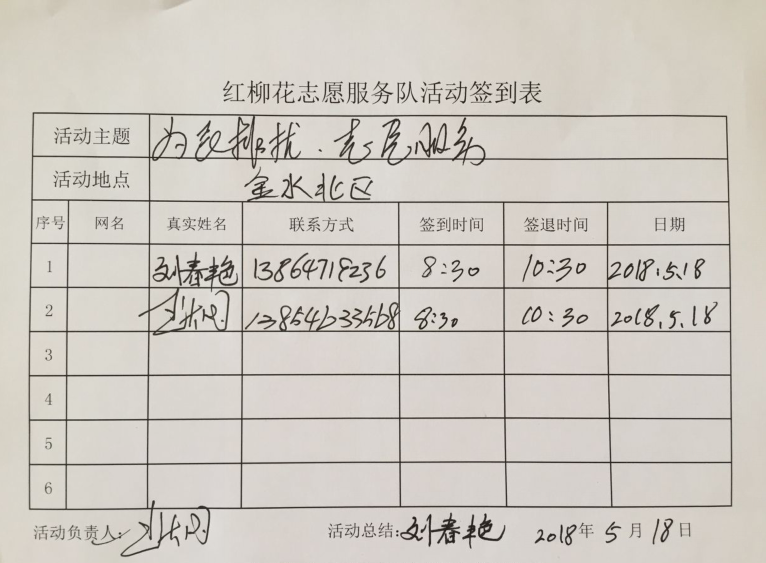 红柳花志愿服务队活动签到表
活动主题 为民排扰.志愿服务
活动地点 金水北区
序号 网名 真实姓名 联系方式 签到时间 签退时间 日期
1 刘春艳 13864719236 8:30 10:30 2018.5.18
2 8:30 10:30 2018.5.18
3
4
5
6
活动负责人: 活动总结:刘春艳 2018年5月18日